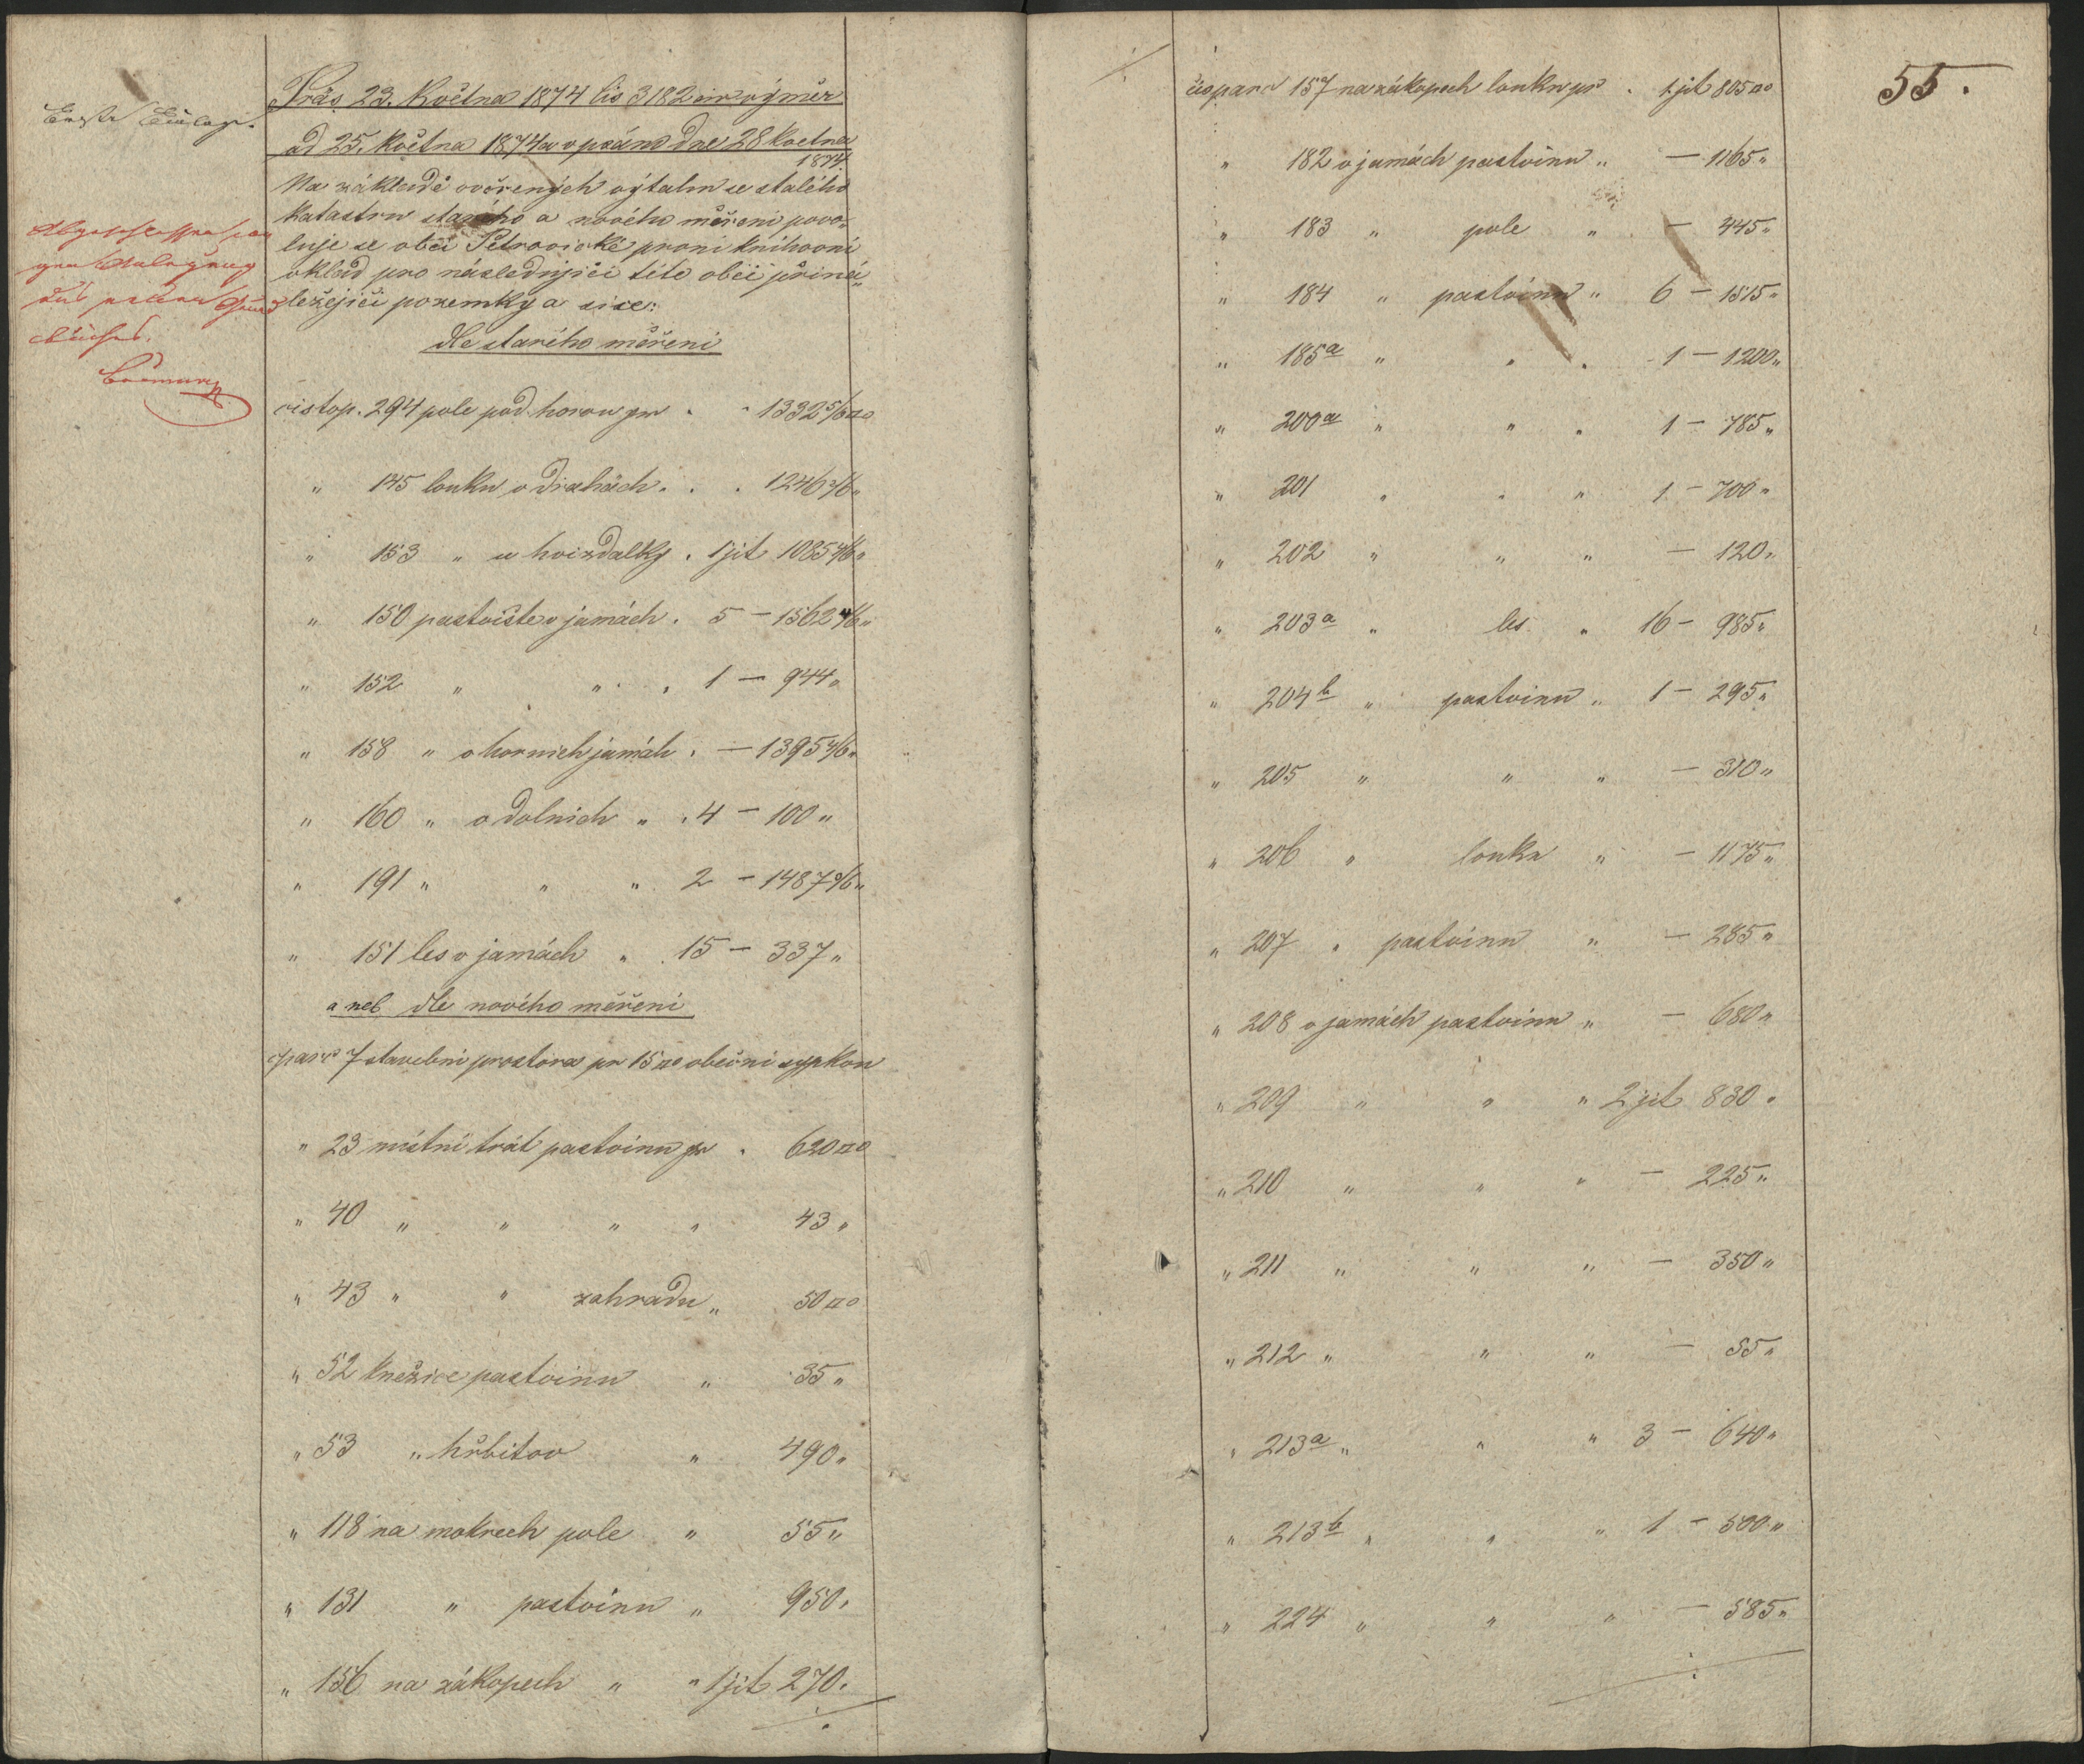 Erste Einlage.
Präs 23. Května 1874 čis 3182 civ výměr
ad 25. Května 1874 a v psáno dne 28 Května
1874
Na základě ověřených výtahu se stalého
katastru starého a nového měřeni povo-
luje se obci Petrovické první knihovní
vklad pro následujíci této obci přiná-
ležejíci pozemky a sice:
dle starého měřeni
čistop. 294 pole pod horou pr . . 1332 5/6 □°
" 145 louku v drahách . . . 1246 2/6 "
" 153 " u hvizdalky . 1 jit 1085 4/6 "
" 150 pastviště v jamách . 5 — 1562 4/6 "
" 152 " " . . 1 — 944 "
" 158 " v hornich jamách . — 1395 4/6 "
" 160 " v dolnich " . 4 — 100 "
" 191 " " " 2 — 1487 /6 "
" 151 les v jamách " . 15 — 337 "
a neb dle nového měřeni
čparc 7 stavebni prostora pr 15 □° obečni sypkou
" 23 mistni trát pastvinu pr . 620 □°
" 40 " " " " 43 "
" 43 " " zahradu " 50 □°
" 52 knežice pastvinu " 35 "
" 53 " hřbitov " 490 "
" 118 na mokrech pole " 55 "
" 131 " pastvinu " 950 "
" 156 na zákopech " " 1 jit 270 "
55.
čisparc 157 na zákopech louku pr . 1 jit 805 □°
" 182 v jamách pastvinu " — 1165 "
" 183 " pole " — 445 "
" 184 " pastvinu " 6 — 1515 "
" 185 a " " " 1 — 1200 "
" 200 a " " " 1 — 785 "
" 201 " " " 1 — 700 "
" 202 " " " — 120 "
" 203 a " les " 16 — 985 "
" 204 b " pastvinu " 1 — 295 "
" 205 " " " — 310 "
" 206 " louka " — 1175 "
" 207 " pastvinu " — 285 "
" 208 v jamách pastvinu " — 680 "
" 209 " " " 2 jit 830 "
" 210 " " " — 225 "
" 211 " " " — 350 "
" 212 " " " — 55 "
" 213 a " " " 3 — 640 "
" 213 b " " " 1 — 500 "
" 224 " " " — 585 "